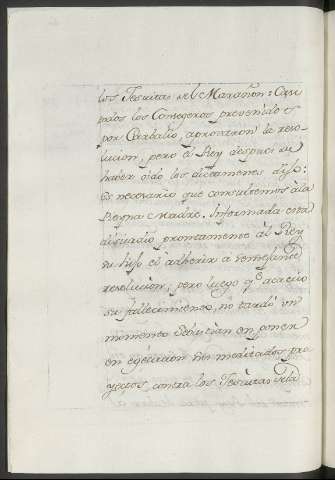 los Jesuitas del Marañon: Cay
pados los Consegeros prevenidos
por Carballo, aprovaron la reso-
lucion, pero el Rey despues de
haver oido los dictamenes dijo:
es necesario que consultemos a la
Reyna Madre. Informada esta
disuadio prontamente al Rey
su hijo el adherir a semejante
resolucion; pero luego qe acaecio
su fallecimiento, no tardó un
momento Sebastian en poner
en egecucion sus meditados pro-
yectos, contra los Jesuitas de la